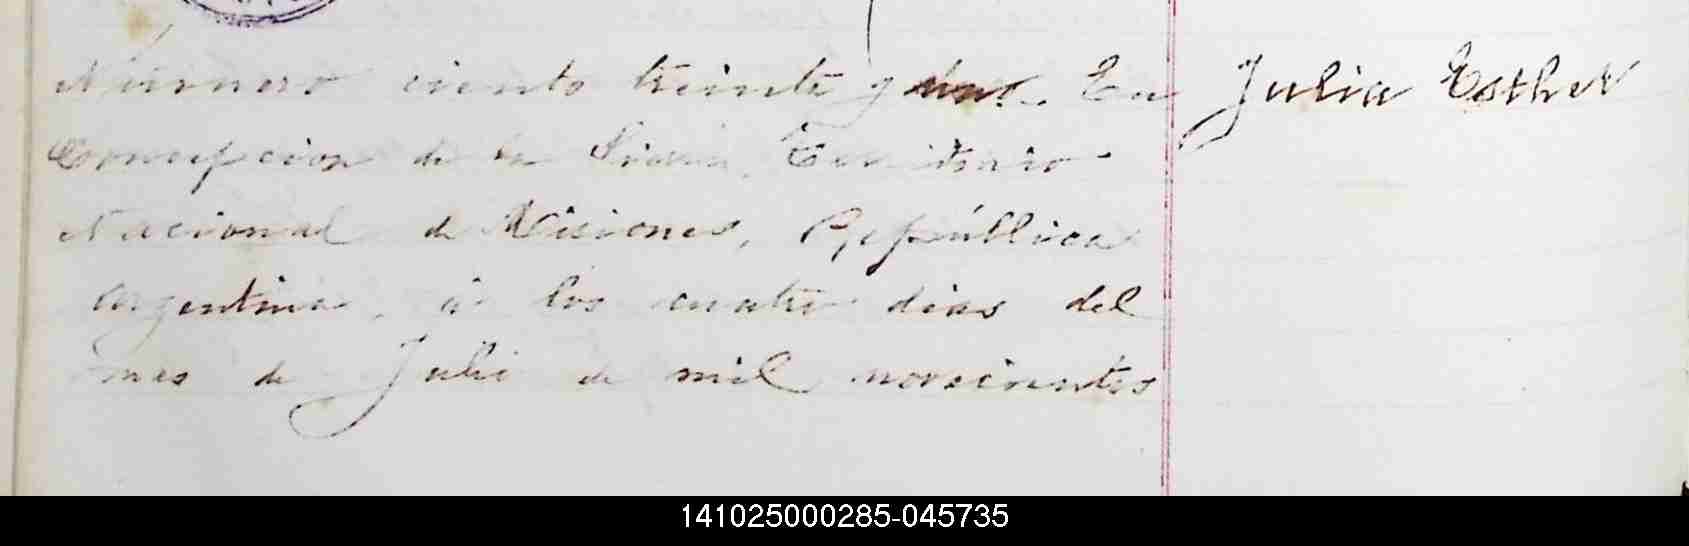 Número ciento treinta y dos. En
Concepcion de la Sierra, Territorio
Nacional de Misiones, República
Argentina, á los cuatro dias del
mes de Julio de mil novecientos
Julia Esther
141025000285-045735